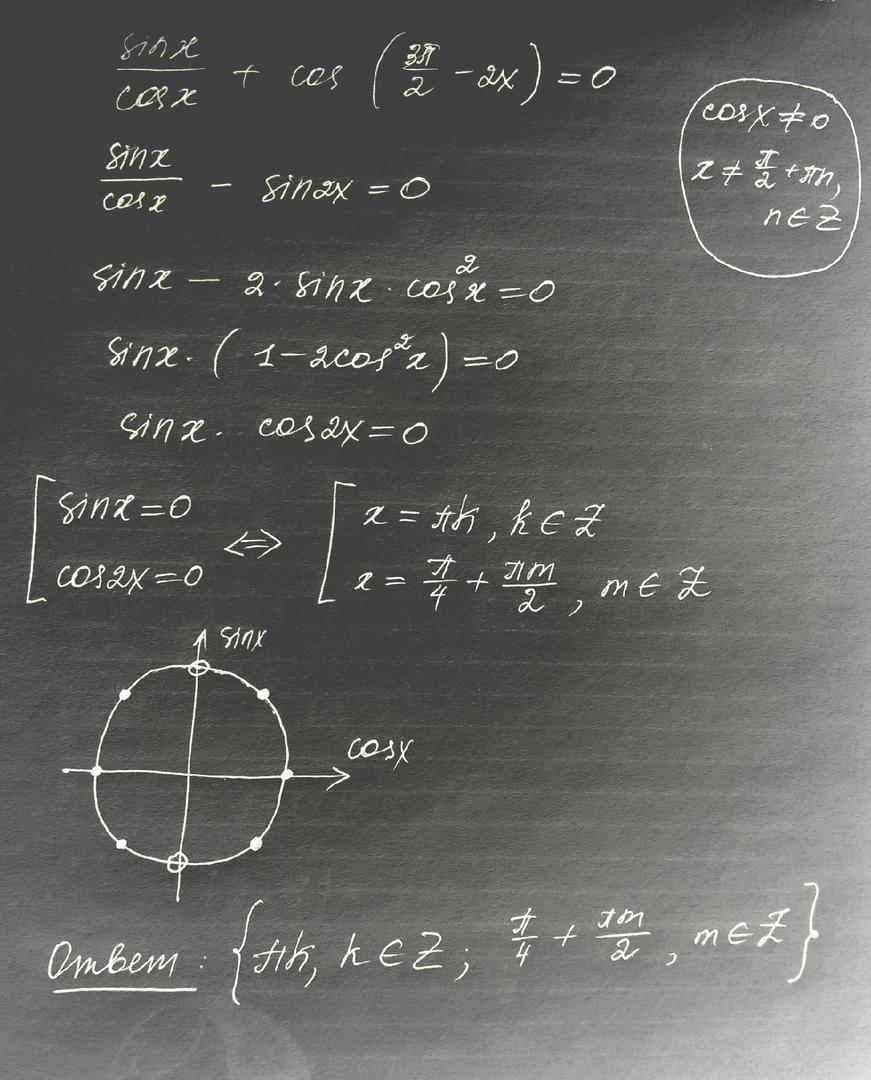 sinx/cosx + cos (3π/2 - 2x) = 0
cosx ≠ 0
x ≠ π/2 + πn,
n ∈ Z
sinx/cosx - sin2x = 0
sinx - 2 · sinx · cos²x = 0
sinx · (1 - 2cos²x) = 0
sinx · cos2x = 0
[ sinx = 0 ⇔ [ x = πk, k ∈ Z
cos2x = 0 x = π/4 + πm/2, m ∈ Z
sinx
cosx
Ответ: {πk, k ∈ Z; π/4 + πm/2, m ∈ Z}